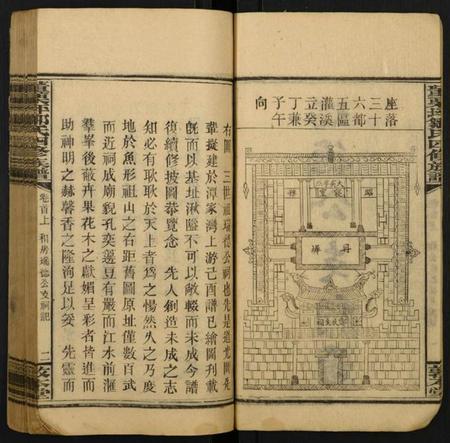 座落
三十
六都
五區
灌溪
立癸
丁兼
子午
向
丹墀
右圖 三世祖瑞德公祠也先是道光間先
輩擬建於潭家灣上游己酉譜已繪圖刊載
旣而以基址湫隘不可以敵輟而未成今譜
復續修披圖恭覽念 先人創造未成之志
知必有耿耿於天上者爲之惕然久之乃度
地於魚形祖山之右距舊圖原址僅數百武
而近祠成廟貌孔奕籩豆有嚴而江水前滙
羣峯後蔽卉果花木之獻媚呈彩者皆進而
助神明之赫馨香之隆洵足以妥 先靈而
卷首上 和房瑞德公支祠記 二 敦本堂